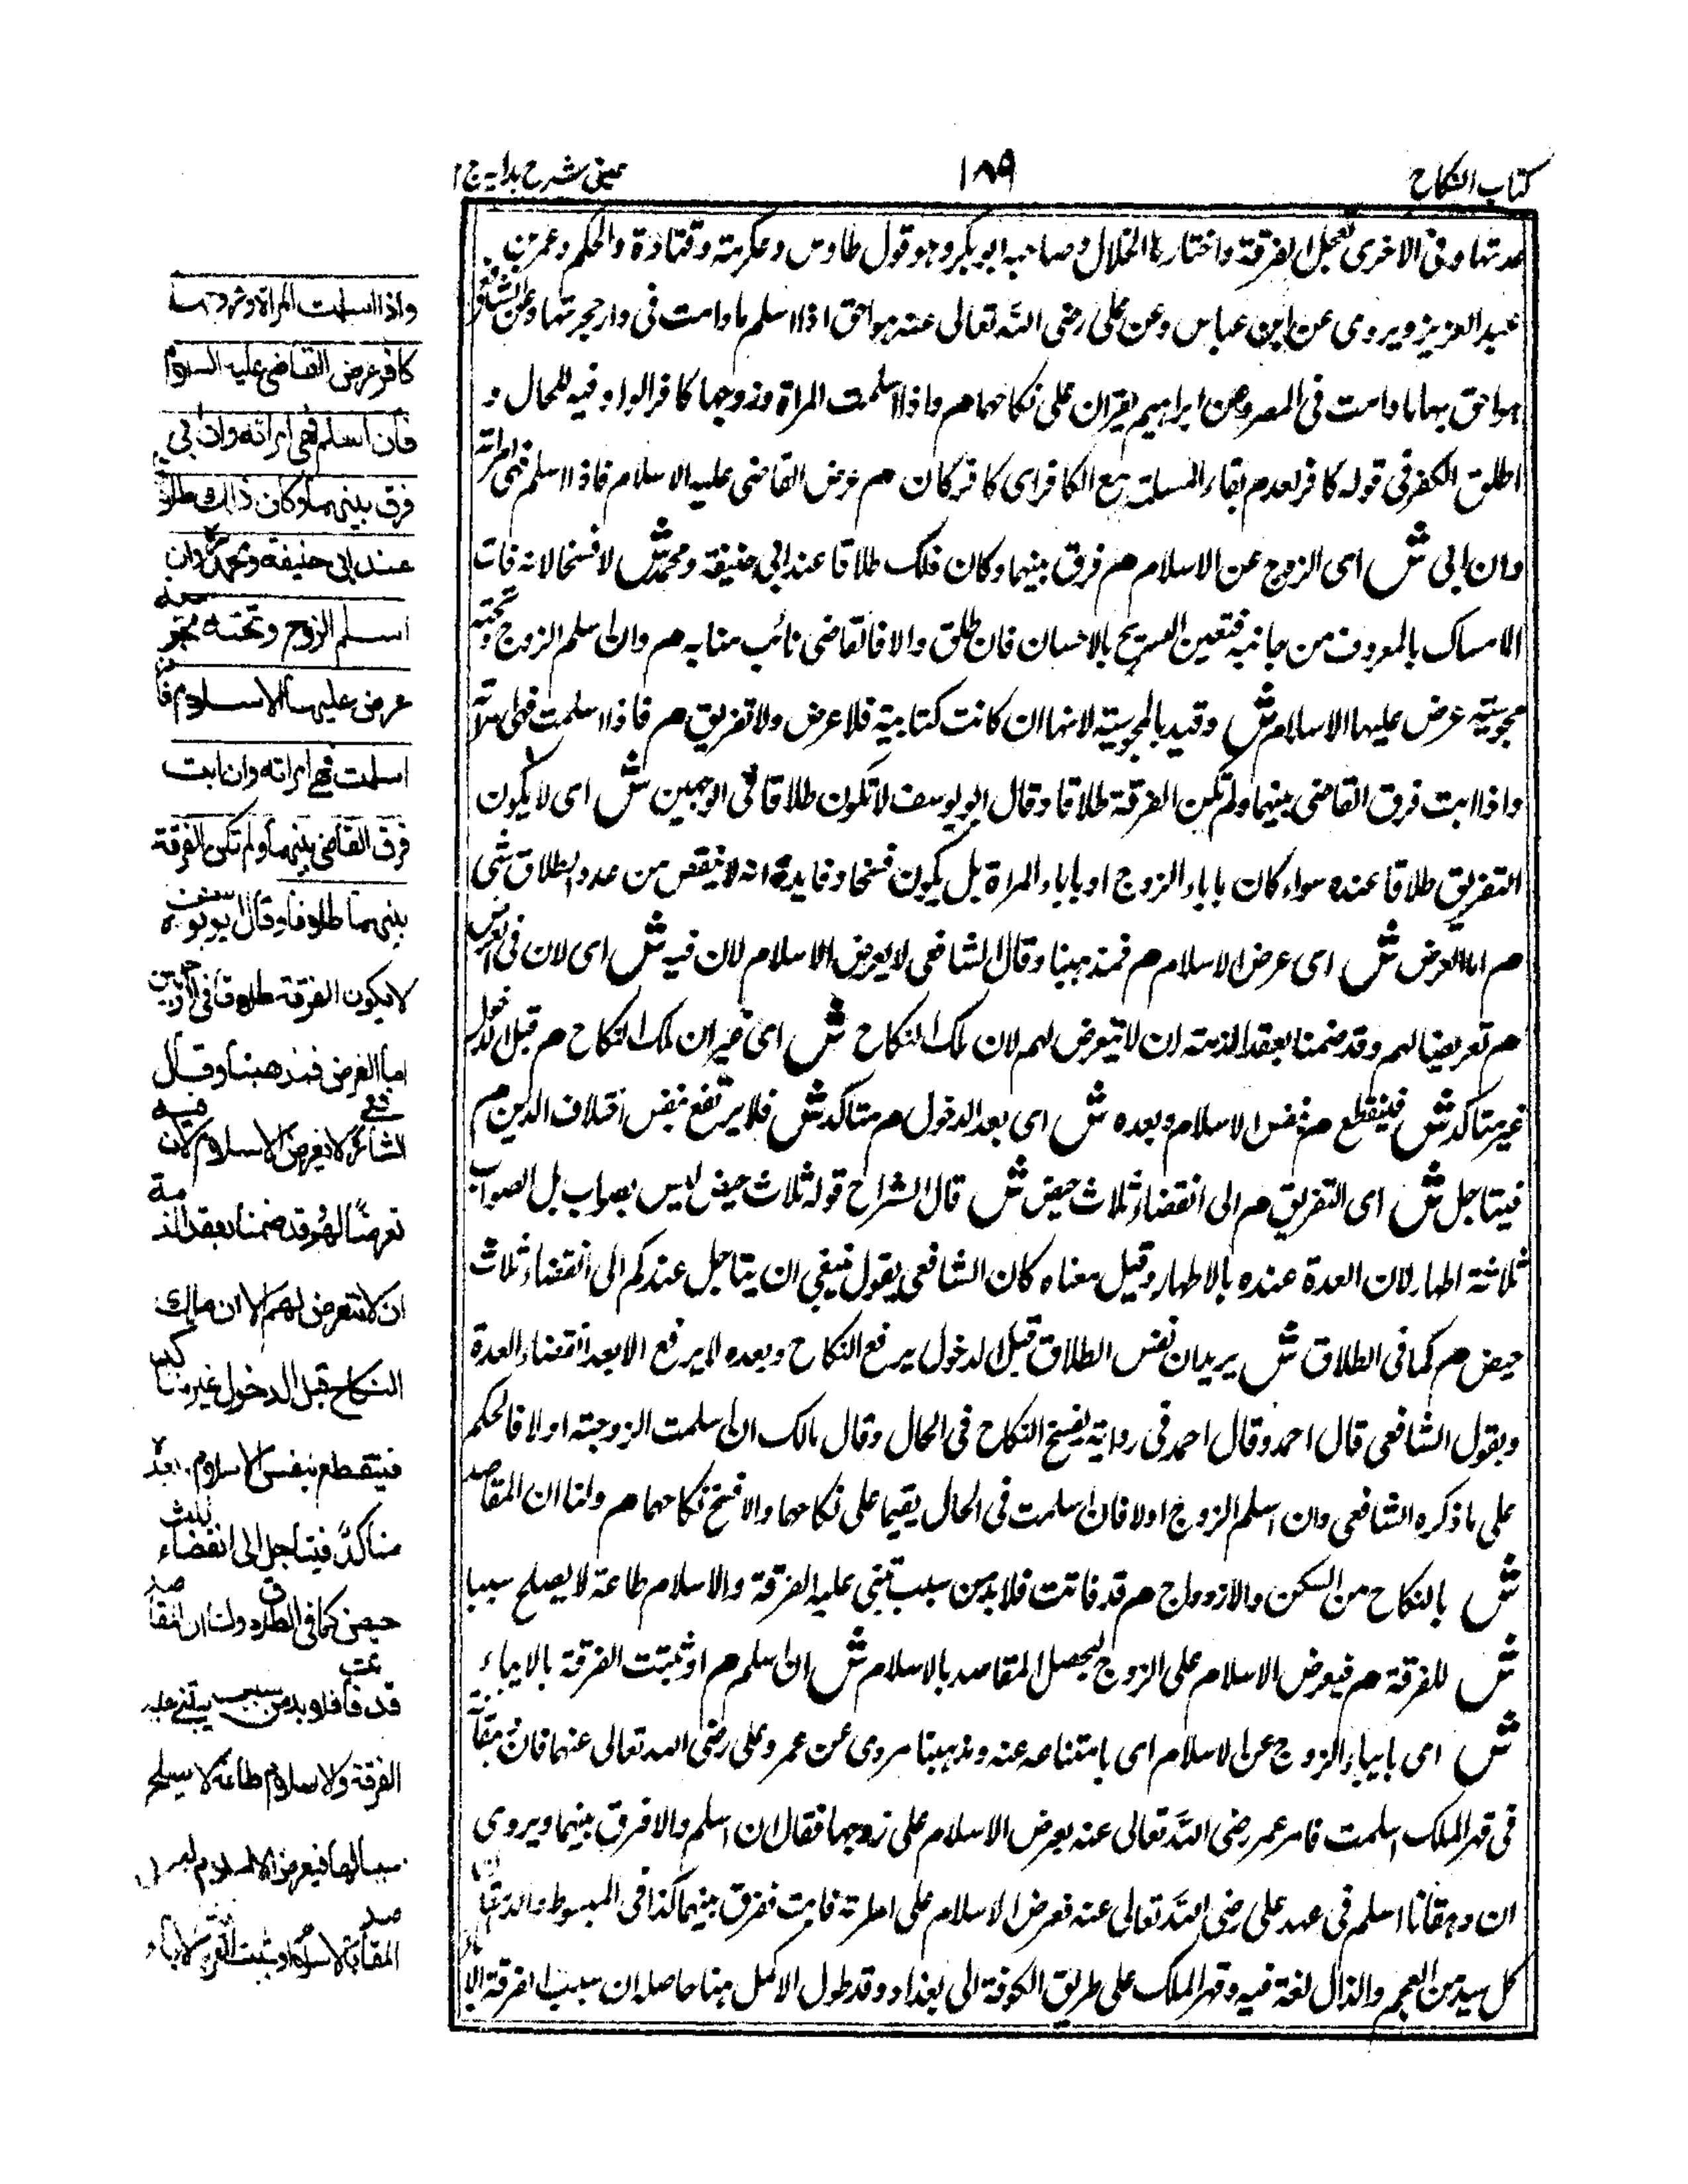 كتاب النكاح
١٨٩
عينى شرح هدايه ج ١
عدتها وفى الاخرى تعجل الفرقة واختارها الخلال وصاحبه ابوبكر وهو قول طاوس وعكرمة وقتادة والحكم وعمر بن
عبد العزيز ويروى عن ابن عباس وعن على رضى الله تعالى عنه هو احق اذا اسلم ما دامت فى دار هجرتها وعن الشعبى
هو احق بها ما دامت فى المصر وعن ابراهيم يقران على نكاحهما م واذا اسلمت المراة وزوجها كافر الواو فيه للحال و
اطلق الكفر فى قوله كافر لعدم بقاء المسلمة مع الكافر اى كافر كان م عرض القاضى عليه الاسلام فاذا اسلم فهى امراته
وان ابى ش اى الزوج عن الاسلام م فرق بينهما وكان ذلك طلاقا عند ابى حنيفة ومحمد ش لا فسخا لانه فات
الامساك بالمعروف من جانبه فتعين التسريح بالاحسان فان طلق والا فالقاضى نائب منابه م وان اسلم الزوج وتحته
مجوسية عرض عليها الاسلام ش وقيد بالمجوسية لانها ان كانت كتابية فلا عرض ولا تفريق م فاذا اسلمت فهى امراته
واذا ابت فرق القاضى بينهما ولم تكن الفرقة طلاقا وقال ابو يوسف لا تكون طلاقا فى الوجهين ش اى لا يكون
التفريق طلاقا عنده سواء كان باباء الزوج او باباء المراة بل يكون فسخا وفايدة انه لا ينقص من عدد الطلاق شئ
م اما العرض ش اى عرض الاسلام م فمذهبنا وقال الشافعى لا يعرض الاسلام لان فيه ش اى لان فى العرض
م تعريضا لهم وقد ضمنا بعقد الذمة ان لا يتعرض لهم لان ملك النكاح ش اى غير ان ملك النكاح م قبل الدخول
غير متاكد ش فينقطع م بنفس الاسلام وبعده ش اى بعد الدخول م متاكد ش فلا يرتفع بنفس اختلاف الدين م
فيتاجل ش اى التفريق م الى انقضاء ثلاث حيض ش قال الشراح قوله ثلاث حيض ليس بصواب بل الصواب
ثلاثة اطهار لان العدة عنده بالاطهار وقيل معناه كان الشافعى يقول ينبغى ان يتاجل عندكم الى انقضاء ثلاث
حيض م كما فى الطلاق ش يريد ان نفس الطلاق قبل الدخول يرفع النكاح وبعده لا يرفع الا بعد انقضاء العدة
وبقول الشافعى قال احمد وقال احمد فى رواية يفسخ النكاح فى الحال وقال مالك ان اسلمت الزوجة اولا فالحكم
على ما ذكره الشافعى وان اسلم الزوج اولا فان اسلمت فى الحال يقيما على نكاحهما والا فسخ نكاحهما م ولنا ان المقاصد
ش بالنكاح من السكن والازدواج م قد فاتت فلا بد من سبب تبنى عليه الفرقة والاسلام طاعة لا يصلح سببا
ش للفرقة م فيعرض الاسلام على الزوج ليحصل المقاصد بالاسلام ش ان اسلم م او ثبتت الفرقة بالاباء
ش اى باباء الزوج عن الاسلام اى بامتناعه عنه ومذهبنا مروى عن عمر وعلى رضى الله تعالى عنهما فان دهقانة
فى قهر الملك اسلمت فامر عمر رضى الله تعالى عنه بعرض الاسلام على زوجها فقال ان اسلم والا فرق بينهما ويروى
ان دهقانا اسلم فى عهد على رضى الله تعالى عنه فعرض الاسلام على امراته فابت ففرق بينهما كذا فى المبسوط والدهقان
كل سيد من العجم والذال لغة فيه وقهر الملك على طريق الكوفة الى بغداد وقد طول الاكمل هنا حاصله ان سبب الفرقة
واذا اسلمت المراة وزوجها
كافر عرض القاضى عليه السلام
فان اسلم فهى امراته وان ابى
فرق بينهما وكان ذلك طلاقا
عند ابى حنيفة ومحمد وان
اسلم الزوج وتحته مجوسية
عرض عليها الاسلام فان
اسلمت فهى امراته وان ابت
فرق القاضى بينهما ولم تكن الفرقة
بينهما طلاقا وقال ابو يوسف
لا يكون الفرقة طلاقا فى الوجهين
اما العرض فمذهبنا وقال
الشافعى لا يعرض الاسلام لان فيه
تعرضا لهم وقد ضمنا بعقد الذمة
ان لا نتعرض لهم الا ان ملك
النكاح قبل الدخول غير متاكد
فينقطع بنفس الاسلام وبعده
متاكد فيتاجل الى انقضاء ثلث
حيض كما فى الطلاق ولنا ان المقاصد
قد فاتت فلا بد من سبب يبتنى عليه
الفرقة والاسلام طاعة لا يصلح
سببا لها فيعرض الاسلام
المقاصد بالاسلام او يثبت الفرقة بالاباء